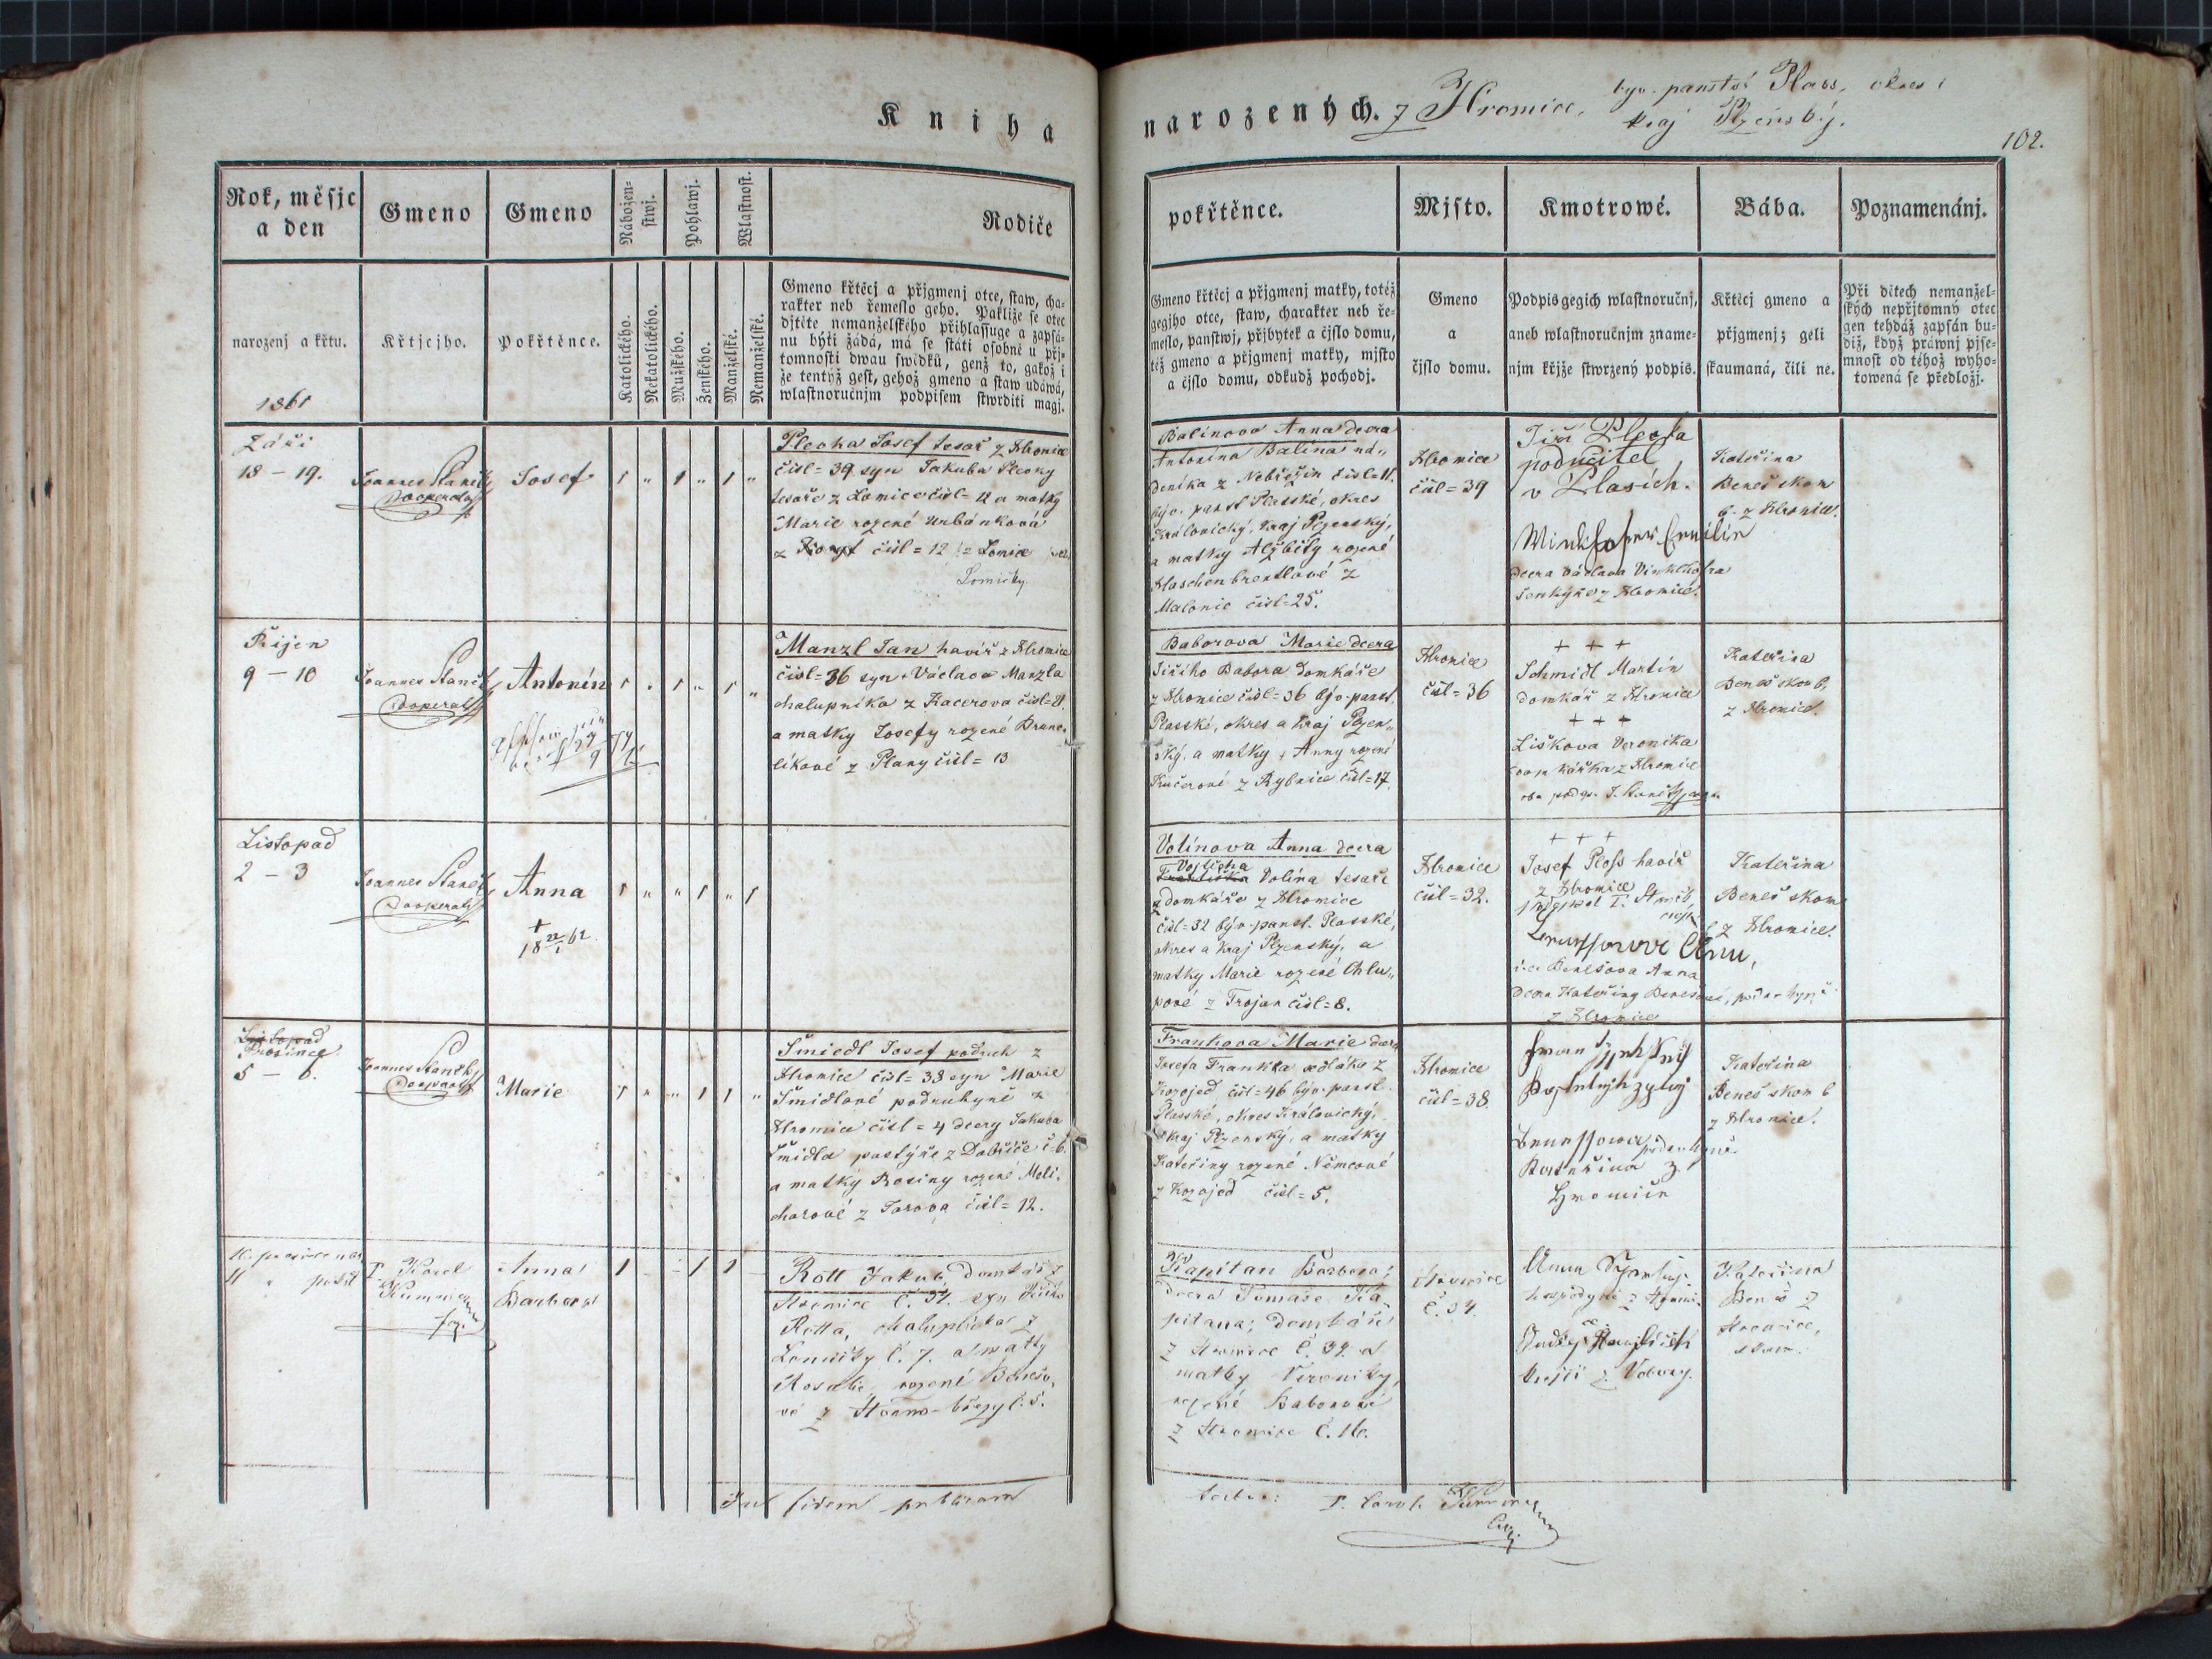 Kniha
narozených. z Hromice,
býv. panství Plass, okres i
kraj Plzeňský.
102.
Rok, měsjc
a den
Gmeno
Gmeno
Nábožen-
stwj.
Pohlawj.
Wlastnost.
Rodiče
pokřtěnce.
Mjsto.
Kmotrowé.
Bába.
Poznamenánj.
narozenj a křtu.
1861
Křtjcjho.
Pokřtěnce.
Katolického.
Nekatolického.
Mužského.
Ženského.
Manželské.
Nemanželské.
Gmeno křtěcj a přjgmenj otce, staw, cha-
rakter neb řemeslo geho. Pakliže se otec
djtěte nemanželského přihlassuge a zapsá-
nu býti žádá, má se státi osobně u přj-
tomnosti dwau swědků, genž to, gakož i
že tentýž gest, gehož gmeno a staw udáwá,
wlastnoručnjm podpisem stwrditi magj.
Gmeno křtěcj a přjgmenj matky, totéž
gegjho otce, staw, charakter neb ře-
meslo, panstwj, přjbytek a čjslo domu,
též gmeno a přjgmenj matky, mjsto
a čjslo domu, odkudž pocházj.
Gmeno
a
čjslo domu.
Podpis gegich wlastnoručnj,
aneb wlastnoručnjm zname-
njm křjže stwrzený podpis.
Křtěcj gmeno a
přjgmenj; geli
skaumaná, čili ne.
Při dětech nemanžel-
ských nepřjtomný otec
gen tehdáž zapsán bu-
diž, když práwnj pjse-
mnost od téhož wyho-
towená se předložj.
Září
18 – 19.
Joannes Staněk
Cooperator
Josef
1 " 1 " 1 "
Plecha Josef tesař z Hromice
čísl = 39 syn Jakuba Plechy
tesaře z Lomice čísl = 4 a matky
Marie rozené Urbánková
čísl = 12
Lomičky.
Balínova Anna dcera
Antonína Balína ná-
deníka z Nebřezin čísl = 11.
býv. panst Plasské, okres
Kralovický, kraj Plzenský,
a matky Alžběty rozené
Haschenbrentlové z
Malonic čísl = 25.
Hromice
čísl = 39
Jiří Plecha
podučitel
v Plasích.
Winkhofer
dcera Václava Vinklhofra
šenkýře z Hromice.
Kateřina
Beneš skou
b. z Hromice.
Říjen
9 – 10
Joannes Staněk
Cooperator
Antonín
1 " 1 " 1 "
Manzl Jan havíř z Hromice
čísl = 36 syn + Václava Manzla
chalupníka z Kacerova čísl = 8.
a matky Josefy rozené Brunc-
líkové z Plany čísl = 13
Baborova Marie dcera
Jiřího Babora domkáře
z Hromice čísl = 36 býv. panst.
Plasské, okres a kraj Plzen-
ský, a matky + Anny rozené
Kučerové z Rybnice čísl = 17.
Hromice
čísl = 36
+ + +
Schmidl Martin
domkář z Hromice
+ + +
Liškova Veronika
domkářka z Hromice
Kateřina
Beneš skou b.
z Hromice.
Listopad
2 – 3
Joannes Staněk
Cooperator
Anna
+
18 22/1 62
1 " " 1 " 1
Volínova Anna dcera
Vojtěcha
Františka Volína tesaře
a domkáře z Hromice
čísl = 32 býv. panst. Plasské,
okres a kraj Plzenský, a
matky Marie rozené Chlu-
pové z Trojan čísl = 8.
Hromice
čísl = 32.
+ + +
Josef Ploss havíř
z Hromice
podepsal
Benešova Anna
dcera Kateřiny Benešové,
z Hromice
Kateřina
Beneš skou
b. z Hromice.
Listopad
Prosince
5 – 6.
Joannes Staněk
Cooperator
Marie
1 " " 1 1 "
Šmiedl Josef podruh z
Hromice čísl = 38 syn Marie
Šmidlové podruhyně z
Hromice čísl = 4 dcery Jakuba
Šmidla pastýře z Dobříče č = 6.
a matky Rosiny rozené Meli-
charové z Jarova čísl = 12.
Frankova Marie dcera
Josefa Frankla sedláka z
Kozojed čísl = 46 býv. panst.
Plasské, okres Kralovický,
kraj Plzenský, a matky
Kateřiny rozené Němcové
z Kozojed čísl = 5.
Hromice
čísl = 38.
podruhyně
Kateřina z
Hromice
Kateřina
Beneš skou b
z Hromice.
10. prosince nar.
11 " pokřt
P. Karel
Kummer
Anna
Barbora
1 – – 1 1 –
Rott Jakub, domkář z
Hromice č. 34. syn
Rotta, chalupníka z
Lomičky č. 7. a matky
Rosalie, rozené Benešo-
vé z
Kapitan Barbora,
dcera Tomáše Ka-
pitana, domkáře
z Hromice č. 34. a
matky Veroniky,
rozené Baborové
z Hromice č. 16.
Hromice
č. 34.
Anna
hospodyně z
krejčí z
Kateřina
Beneš z
Hromice,
skou.
In fidem publicam
testor: P. Carol. Kummer